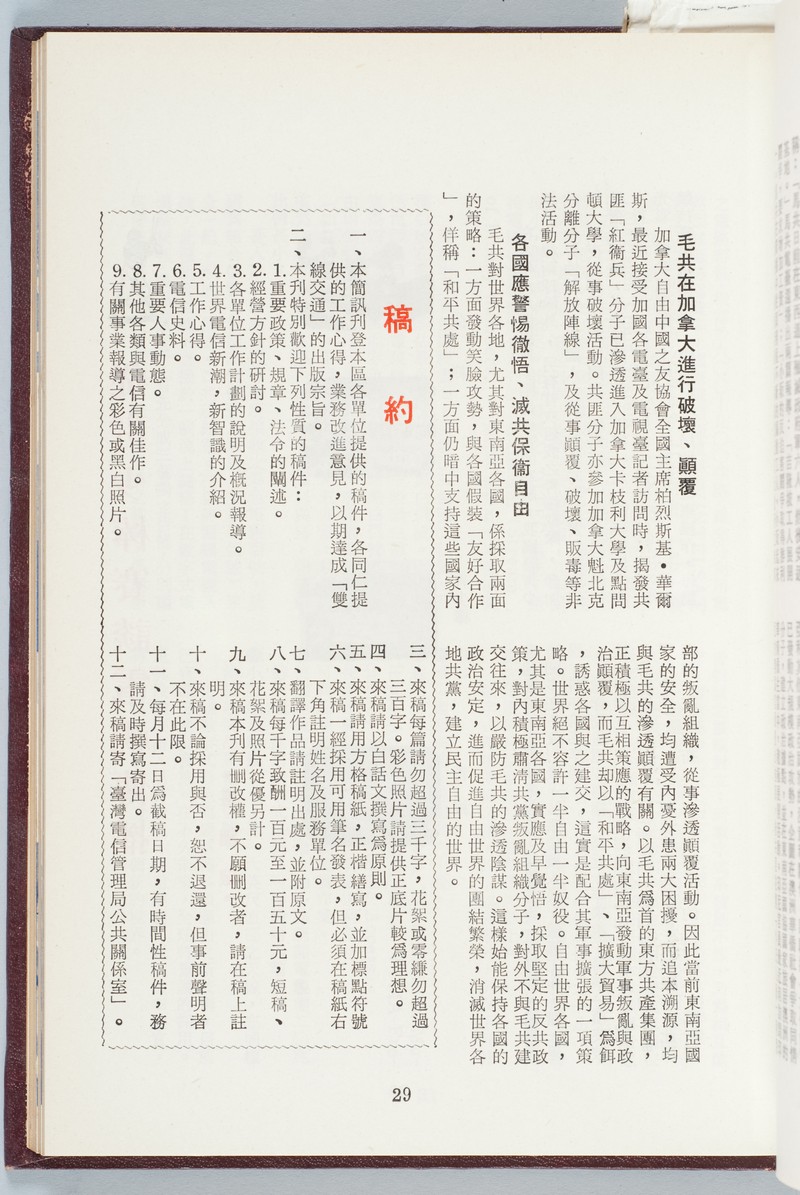 毛共在加拿大進行破壞、顚覆
加拿大自由中國之友協會全國主席柏烈斯基•華爾
斯，最近接受加國各電臺及電視臺記者訪問時，揭發共
匪「紅衞兵」分子已滲透進入加拿大卡枝利大學及點問
頓大學，從事破壞活動。共匪分子亦參加加拿大魁北克
分離分子「解放陣線」，及從事顚覆、破壞、販毒等非
法活動。
各國應警惕徹悟、滅共保衞自由
毛共對世界各地，尤其對東南亞各國，係採取兩面
的策略：一方面發動笑臉攻勢，與各國假裝「友好合作
」，佯稱「和平共處」；一方面仍暗中支持這些國家內
部的叛亂組織，從事滲透顚覆活動。因此當前東南亞國
家的安全，均遭受內憂外患兩大困擾，而追本溯源，均
與毛共的滲透顚覆有關。以毛共爲首的東方共產集團，
正積極以互相策應的戰略，向東南亞發動軍事叛亂與政
治顚覆，而毛共却以「和平共處」、「擴大貿易」爲餌
，誘惑各國與之建交，這實是配合其軍事擴張的一項策
略。世界絕不容許一半自由一半奴役。自由世界各國，
尤其是東南亞各國，實應及早覺悟，採取堅定的反共政
策，對內積極肅清共黨叛亂組織分子，對外不與毛共建
交往來，以嚴防毛共的滲透陰謀。這樣始能保持各國的
政治安定，進而促進自由世界的團結繁榮，消滅世界各
地共黨，建立民主自由的世界。
稿約
一、本簡訊刊登本區各單位提供的稿件，各同仁提
供的工作心得，業務改進意見，以期達成「雙
線交通」的出版宗旨。
二、本刊特別歡迎下列性質的稿件：
1.重要政策、規章、法令的闡述。
2.經營方針的研討。
3.各單位工作計劃的說明及概況報導。
4.世界電信新潮，新智識的介紹。
5.工作心得。
6.電信史料。
7.重要人事動態。
8.其他各類與電信有關佳作。
9.有關事業報導之彩色或黑白照片。
三、來稿每篇請勿超過三千字，花絮或零縑勿超過
三百字。彩色照片請提供正底片較爲理想。
四、來稿請以白話文撰寫爲原則。
五、來稿請用方格稿紙，正楷繕寫，並加標點符號
六、來稿一經採用可用筆名發表，但必須在稿紙右
下角註明姓名及服務單位。
七、翻譯作品請註明出處，並附原文。
八、來稿每千字致酬一百元至一百五十元，短稿、
花絮及照片從優另計。
九、來稿本刊有刪改權，不願刪改者，請在稿上註
明。
十、來稿不論採用與否，恕不退還，但事前聲明者
不在此限。
十一、每月十二日爲截稿日期，有時間性稿件，務
請及時撰寫寄出。
十二、來稿請寄「臺灣電信管理局公共關係室」。
29